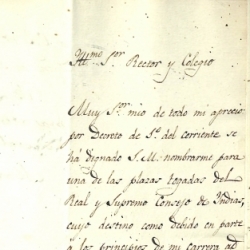 Yllmo. Sor. Rector y Colegio
Muy Sor. mio de todo mi aprecio:
por Decreto de 5.. del corriente se
há dignado S.M. nombrarme para
una de las plazas togadas del
Real y Supremo Consejo de Indias,
cuyo destino como debido en parte
á los principios de mi carrera al